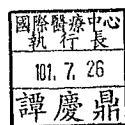 國際醫療中心
執行長
101. 7. 26
譚慶鼎